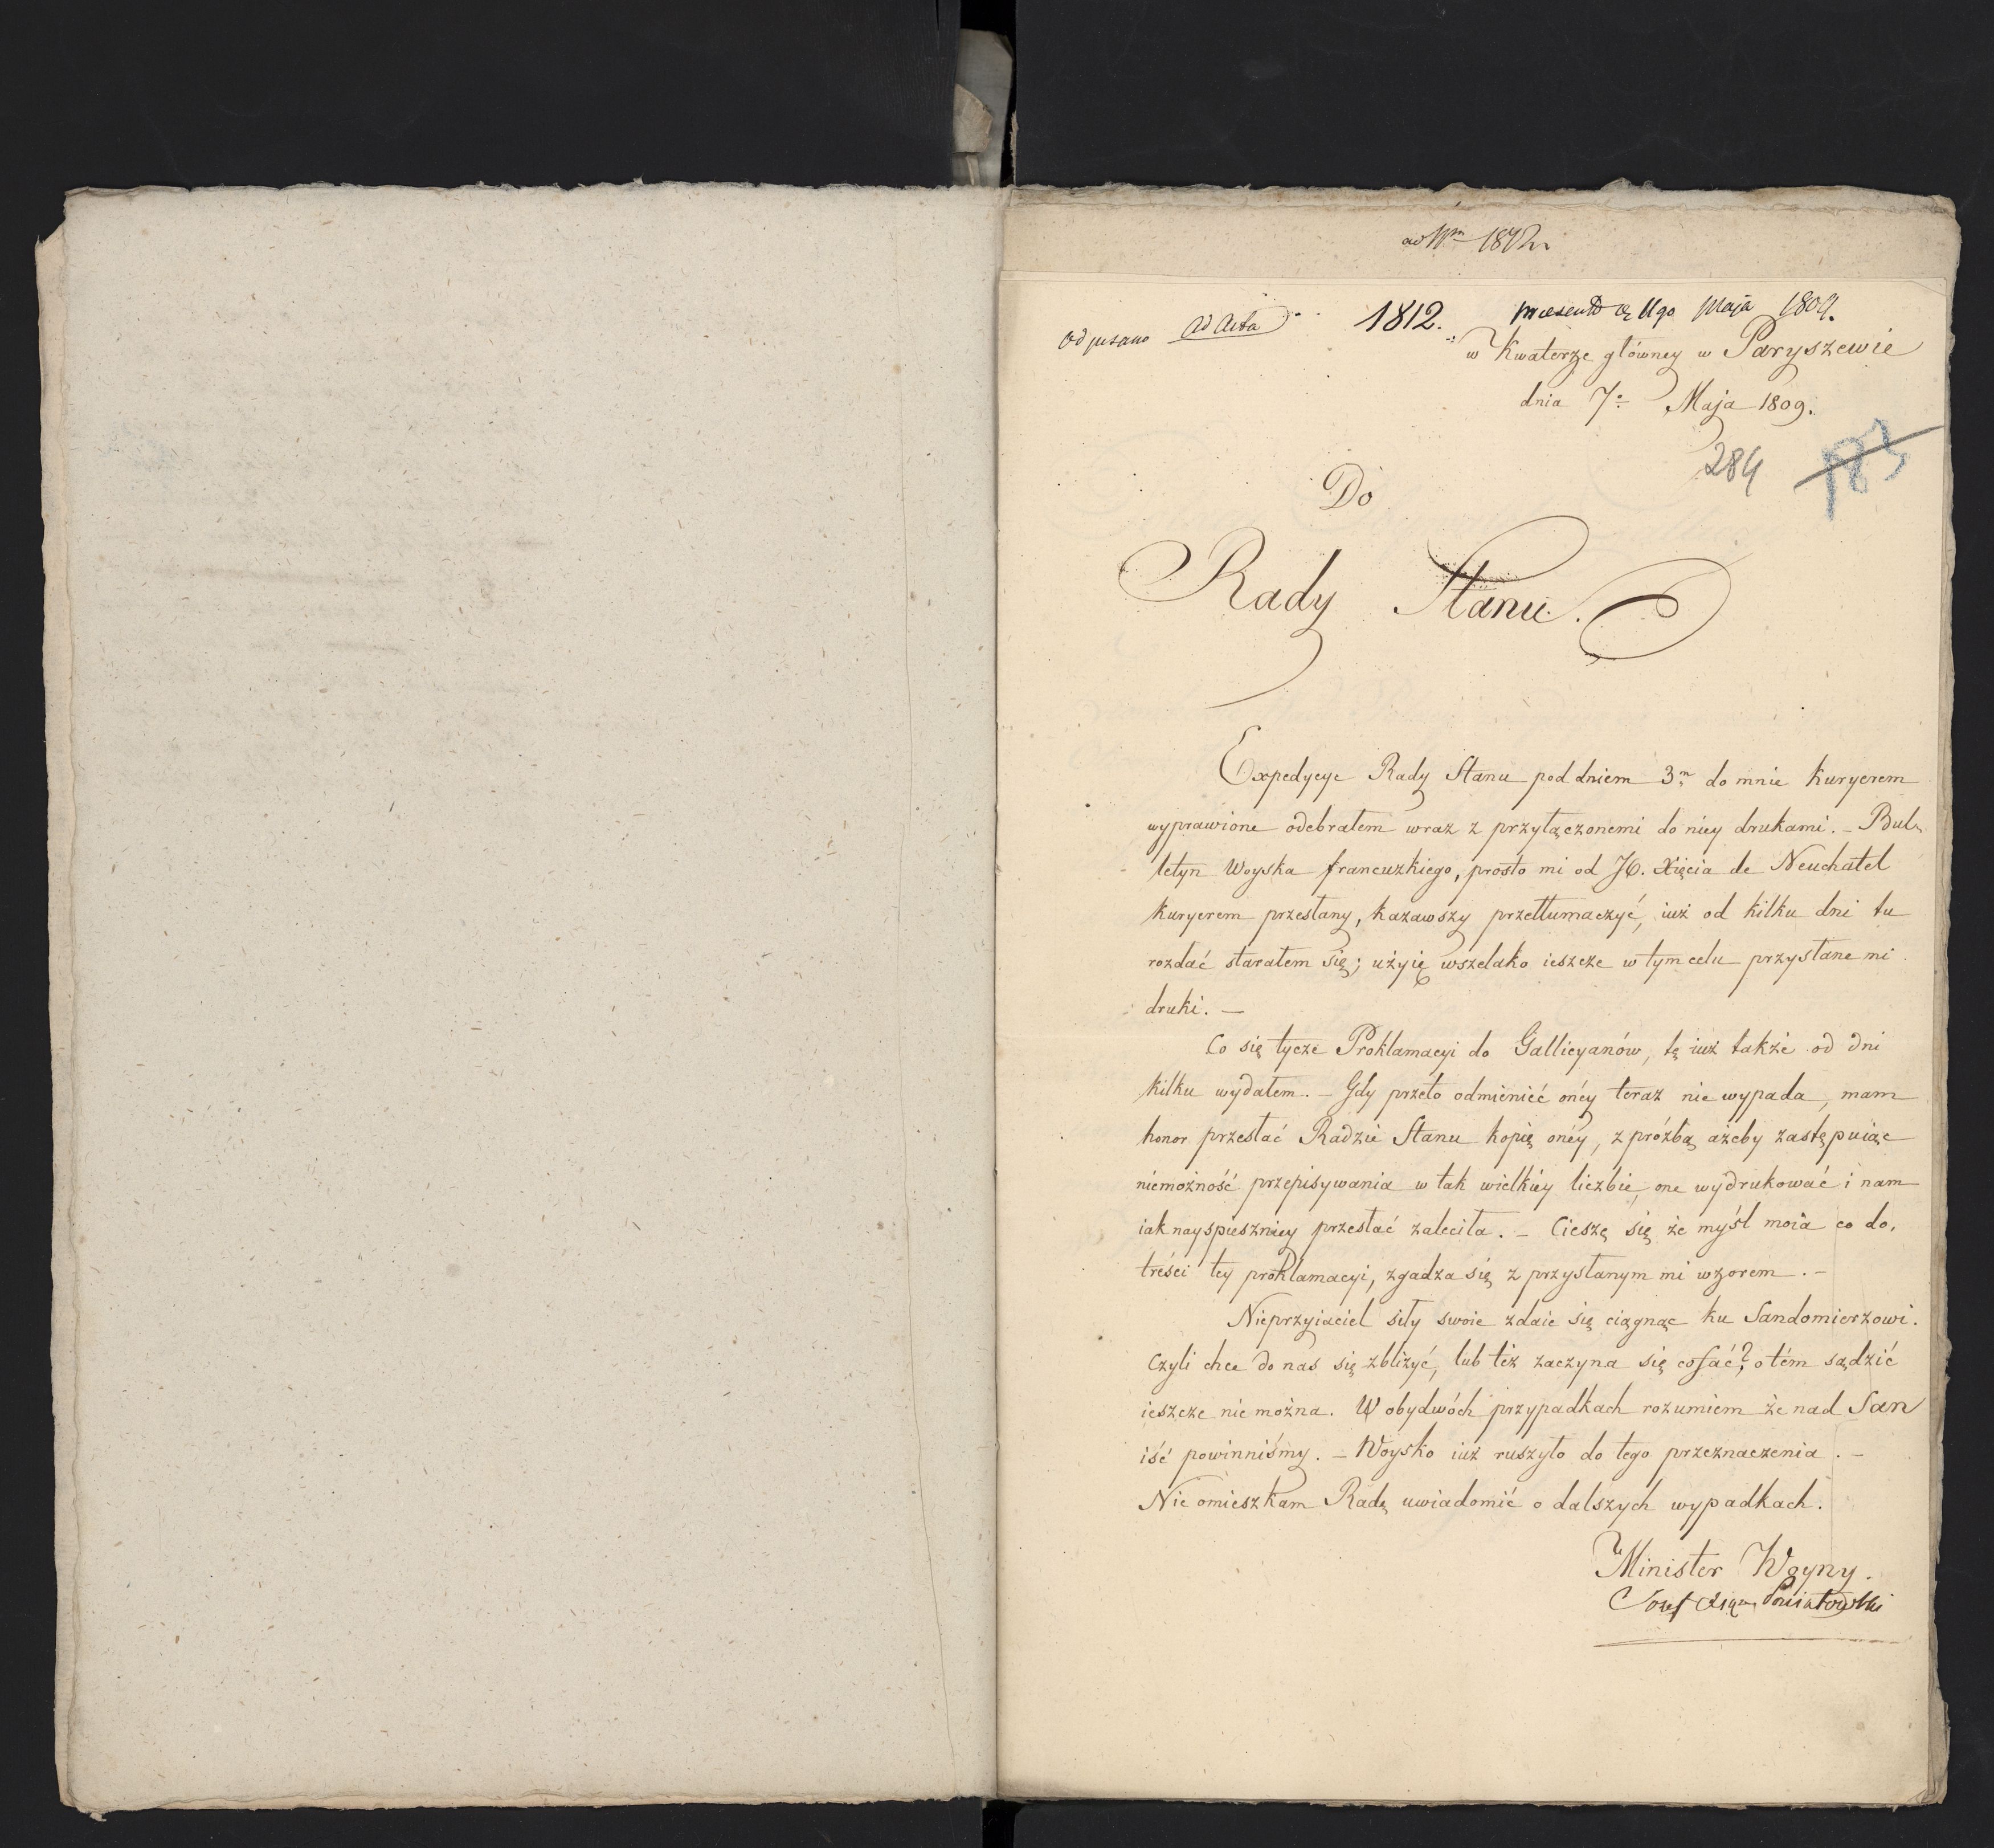 ad Nrm
Odpisano ad Acta 1812. 11go Maja 1809.
w Kwaterze główney w Paryszewie
dnia 7º Maja 1809.
284 183
Do
Rady Stanu.
Expedycye Rady Stanu pod dniem 3m do mnie kuryerem
wyprawione odebrałem wraz z przyłączonemi do niey drukami. – Bul-
letyn Woyska francuzkiego, prosto mi od JO. Xięcia de Neuchatel
kuryerem przesłany, kazawszy przetłumaczyć, iuż od kilku dni tu
rozdać starałem się; użyię wszelako ieszcze w tym celu przysłane mi
druki. –
Co się tycze Proklamacyi do Gallicyanów, tę iuż także od dni
kilku wydałem. – Gdy przeto odmienić onéy teraz nie wypada, mam
honor przesłać Radzie Stanu kopię onéy, z próźbą ażeby zastępuiąc
niemożność przepisywania w tak wielkiey liczbie, one wydrukować i nam
iak nayspieszniey przesłać zaleciła. – Cieszę się że myśl moia co do
treści tey proklamacyi, zgadza się z przysłanym mi wzorem. –
Nieprzyiaciel siły swoie zdaie się ciągnąc ku Sandomierzowi.
Czyli chce do nas się zbliżyć, lub też zaczyna się cofać? o tém sądzić
ieszcze nie można. W obydwóch przypadkach rozumiem że nad San
iść powinniśmy. – Woysko iuż ruszyło do tego przeznaczenia. –
Nie omieszkam Radę uwiadomić o dalszych wypadkach.
Minister Woyny.
Józef Xiąże Poniatowski